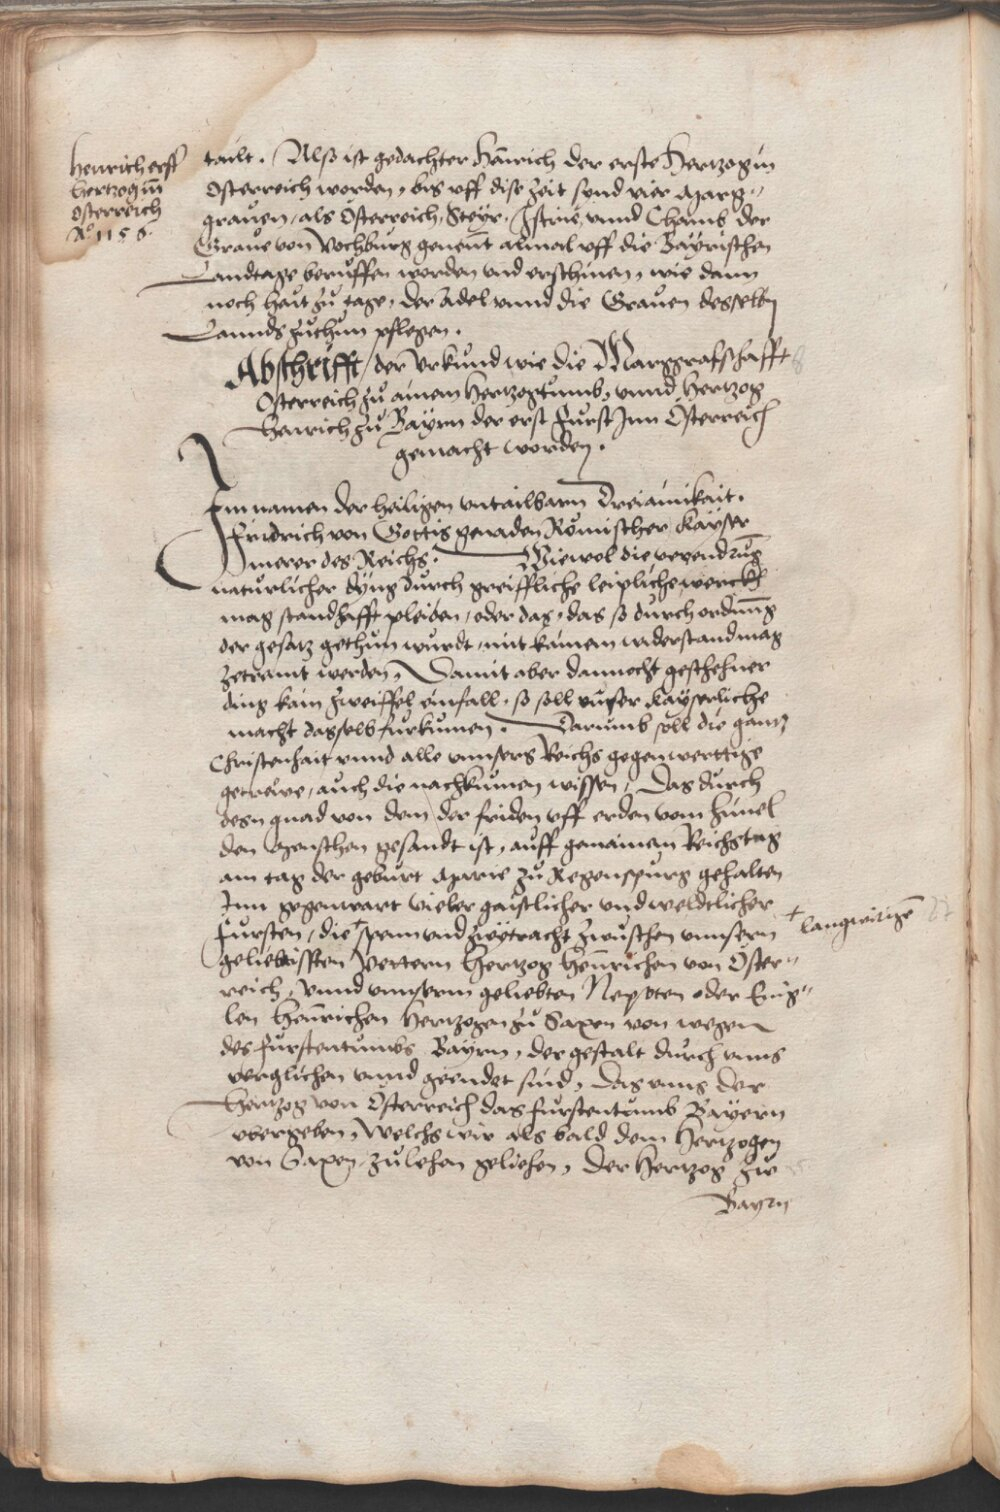 Henrich erst
Hertzog in
Osterreich
Aº 1156.
tailt. Also ist gedachter Hainrich der erste Hertzog in
Osterreich worden, bis uff dise zeit seind vier Marg„
grauen, als Österreich, Steyr, Istria, unnd Chamb der
Graue von Vochburg genent almal uff die Bayrischen
Landtage beruffen worden und erschinen, wie dann
noch heut zu tage, der Adel unnd die Grauen desselben
Lannds zuthun pflegen.
Abschrifft, der Urkund wie die Marggrafschafft
Osterreich zu ainem Hertzogtumb, unnd Hertzog
Henrich zu Bayrn der erst Furst Inn Österreich
gemacht worden.
Im namen der heiligen untailbarn Dreiainikait.
Fridrich von Gottis genaden Römischer Kayser
merer des Reichs. Wiewol die verendrung
naturlicher ding durch greiffliche leipliche werckh
mag standhafft pleiben, oder das, das so durch ordnung
der gesatz gethun wurdt, mit kainem widerstand mag
zetrant werden, Damit aber dannocht geschehner
ding kain zweiffel einfall, so soll unser Kayserliche
macht dasselb furkumen. Darumb soll die gantz
Christenhait unnd alle unnsers Reichs gegenwerttige
getrewe, auch die nachkumen wissen, Das durch
desn gnad von dem der friden uff erden vom himel
den Menschen gesandt ist, auff gemainem Reichstag
am tag der geburt Marie zu Regenspurg gehalten
Inn gegenwart vieler gaistlicher und weldtlicher
Fursten, die + spenn und zwytracht zwuschen unnserm
+ langwirigen
geliebtisten Vettern Hertzog Henrichen von Öster„
reich, unnd unnserm geliebten Nepoten oder Enig„
len Henrichen Hertzogen zu Saxen von wegen
des furstentumbs Bayrn, der gestalt durch unns
verglichen unnd geendet sind, Das uns der
Hertzog von Österreich das furstentumb Bayern
ubergeben, Welchs wir als bald dem Hertzogen
von Saxen zu lehen geliehen, Der Hertzog zu
Bayrn